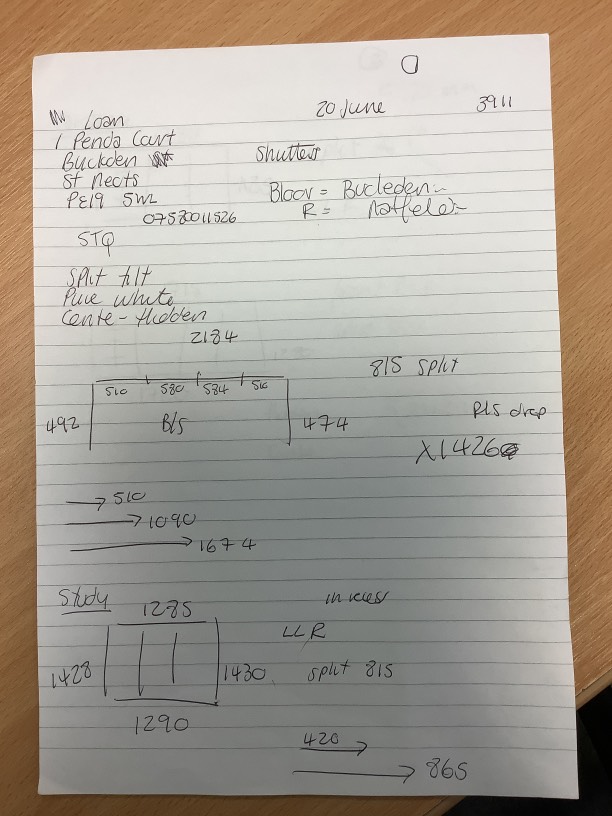 20 June 3911
Mr Loan
1 Penda Court
Buckden
Shutters
St Neots
PE19 5WL
07530011526
R =
STQ
Split tilt
Pure white
Centre - Hidden
2184
815 split
510 580 584 510
492 B/S 474
drop
X1426
510
1090
1674
Study 1285 in recess
LLR
1428 1430 split 815
1290
420
865